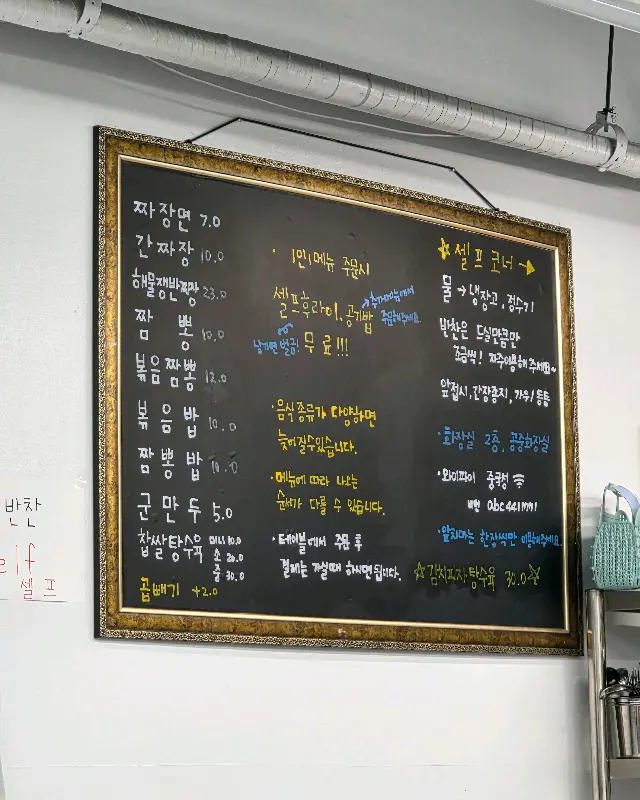 짜장면 7.0
간짜장 10.0
해물쟁반짜장 23.0
짬 뽕 10.0
볶음짬뽕 12.0
볶 음 밥 10.0
짬 뽕 밥 10.0
군 만 두 5.0
찹쌀탕수육 미니 10.0
소 20.0
중 30.0
곱빼기 +2.0
· 1인 1메뉴 주문시
셀프후라이, 공기밥
추가메뉴에서
주문해주세요.
남기면 벌금!
무료!!!
· 음식 종류가 다양하면
늦어질 수 있습니다.
· 메뉴에 따라 나오는
순서가 다를 수 있습니다.
· 테이블에서 주문 후
결제는 가실때 하시면 됩니다.
☆ 셀프코너 →
물 → 냉장고, 정수기
반찬은 드실만큼만
조금씩! 자주이용해 주세요~
앞접시, 간장종지, 가위/
· 화장실 2층, 공중화장실
· 와이파이 중국성
비번 abc441mm1
· 앞치마는 한장씩만 이용해주세요.
☆김치피자탕수육 30.0☆
반찬
elf
셀프